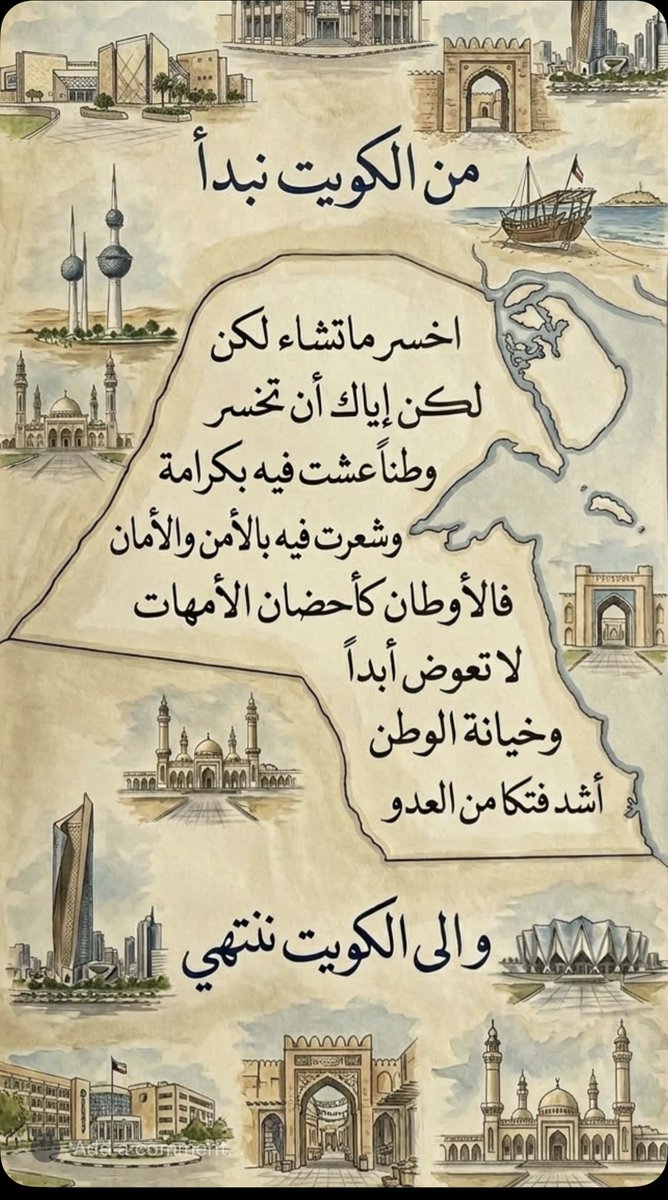 من الكويت نبدأ
اخسر ماتشاء لكن
لكن إياك أن تخسر
وطناً عشت فيه بكرامة
وشعرت فيه بالأمن والأمان
فالأوطان كأحضان الأمهات
لا تعوض أبداً
وخيانة الوطن
أشد فتكا من العدو
والى الكويت ننتهي
Add a comment...